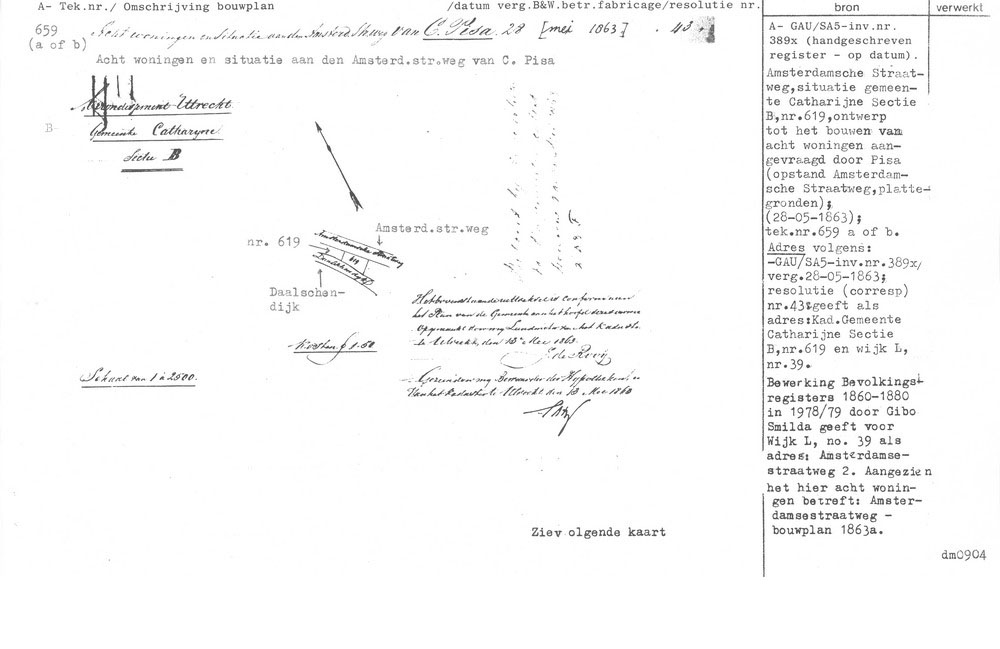 A- Tek.nr./ Omschrijving bouwplan /datum verg.B&W.betr.fabricage/resolutie nr. bron verwerkt
659 Acht woningen en Situatie aan den Amsterd. Str.weg van C. Pisa. 28 [mei 1863] . 43
(a of b)
Acht woningen en situatie aan den Amsterd.str.weg van C. Pisa
Arrondisement Utrecht
B-
Gemeente Catharyne
Sectie B
Amsterd.str.weg
nr. 619
Amsterdamsche Straatweg
619
Daalschendijk
Daalschen-
dijk
Het bovenstaande uittreksel is conform aan
het Plan van de Gemeente aan het hoofd dezes vermeld
Opgemaakt door my Landmeter van het Kadaster
te Utrecht, den 13e Mei 1863.
E de Rooij
Kosten f 1.50
Schaal van 1 à 2500.
Gezien door my Bewaarder der Hypotheken en
Van het Kadaster te Utrecht den 13 Mei 1863
Ziev olgende kaart
A- GAU/SA5-inv.nr.
389x (handgeschreven
register - op datum).
Amsterdamsche Straat-
weg,situatie gemeen-
te Catharijne Sectie
B,nr.619,ontwerp
tot het bouwen van
acht woningen aan-
gevraagd door Pisa
(opstand Amsterdam-
sche Straatweg,platte-
gronden);
(28-05-1863);
tek.nr.659 a of b.
Adres volgens:
-GAU/SA5-inv.nr.389x/
verg.28-05-1863;
resolutie (corresp)
nr.43:geeft als
adres:Kad.Gemeente
Catharijne Sectie
B,nr.619 en wijk L,
nr.39.
Bewerking Bevolkings-
registers 1860-1880
in 1978/79 door Gibo
Smilda geeft voor
Wijk L, no. 39 als
adres: Amsterdamse-
straatweg 2. Aangezien
het hier acht wonin-
gen betreft: Amster-
damsestraatweg -
bouwplan 1863a.
dm0904